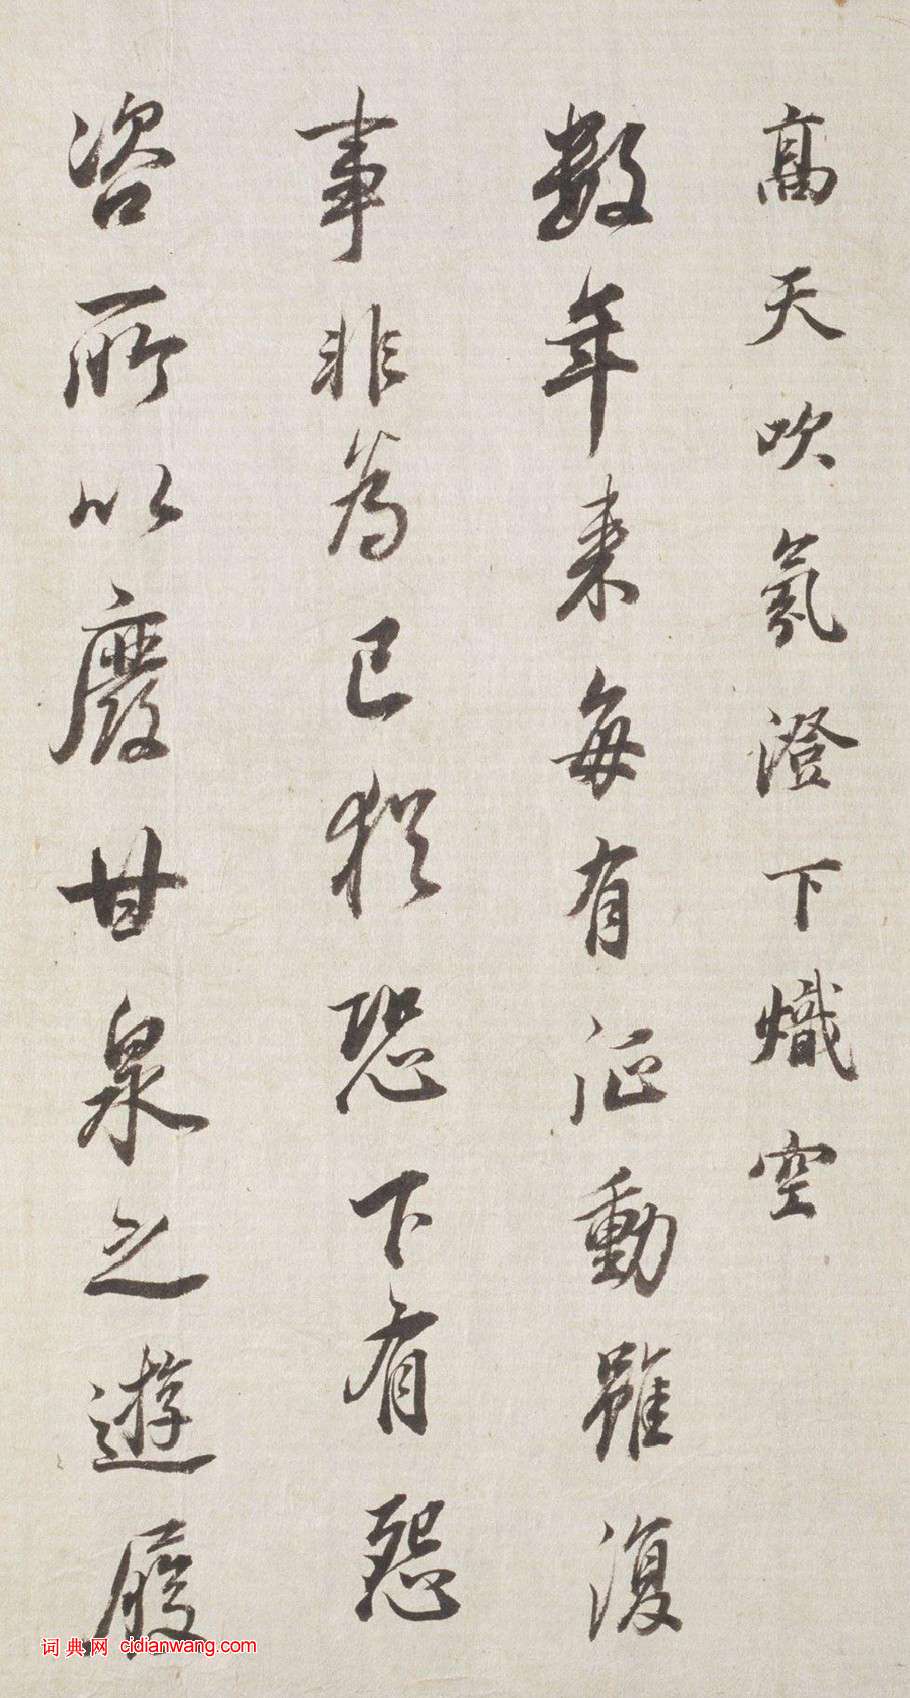 高天吹氣澄下熾空
数年来每有征動雖復
事非為己猶恐下有怨
咨所以廢甘泉之遊履
词典网 cidianwang.com